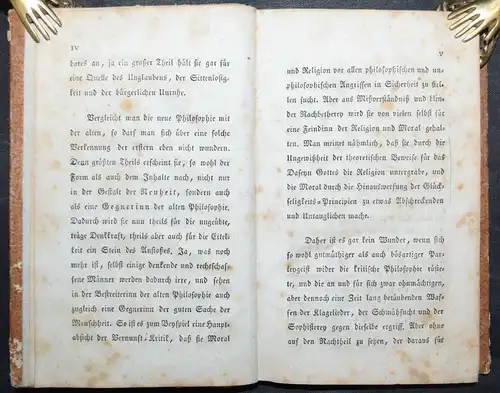 IV
bares an, ja ein großer Theil hält sie gar für
eine Quelle des Unglaubens, der Sittenlosig-
keit und der bürgerlichen Unruhe.
Vergleicht man die neue Philosophie mit
der alten, so darf man sich über eine solche
Verkennung der erstern eben nicht wundern.
Denn größten Theils erscheint sie, so wohl der
Form als auch dem Inhalte nach, nicht nur
in der Gestalt der Neuheit, sondern auch
als eine Gegnerinn der alten Philosophie.
Dadurch wird sie nun theils für die ungeübte,
träge Denkkraft, theils aber auch für die Eitel-
keit ein Stein des Anstoßes. Ja, was noch
mehr ist, selbst einige denkende und rechtschaf-
fene Männer werden dadurch irre, und sehen
in der Bestreiterinn der alten Philosophie auch
zugleich eine Gegnerinn der guten Sache der
Menschheit. So ist es zum Beyspiel eine Haupt-
absicht der Vernunft-Kritik, daß sie Moral
V
und Religion vor allen philosophischen und un-
philosophischen Angriffen in Sicherheit zu stel-
len sucht. Aber aus Misverständniß und blin-
der Nachbetherey wird sie von vielen gerade für
eine Feindinn der Religion und Moral gehal-
ten. Man meinet nähmlich, daß sie durch die
Ungewißheit der theoretischen Beweise für das
Daseyn Gottes die Religion untergrabe, und
die Moral durch die Hinauswerfung der Glück-
seligkeits-Principien zu etwas Abschreckenden
und Untauglichen mache.
Daher ist es gar kein Wunder, wenn sich
so wohl gutmüthiger als auch bösartiger Par-
teygeist wider die kritische Philosophie rüste-
te, und die an sich für zwar ohnmächtigen,
aber dennoch eine Zeit lang betäubenden Waf-
fen der Klagelieder, der Schmähsucht und der
Sophisterey gegen dieselbe ergriff. Aber ohne
auf den Nachtheil zu sehen, der daraus für